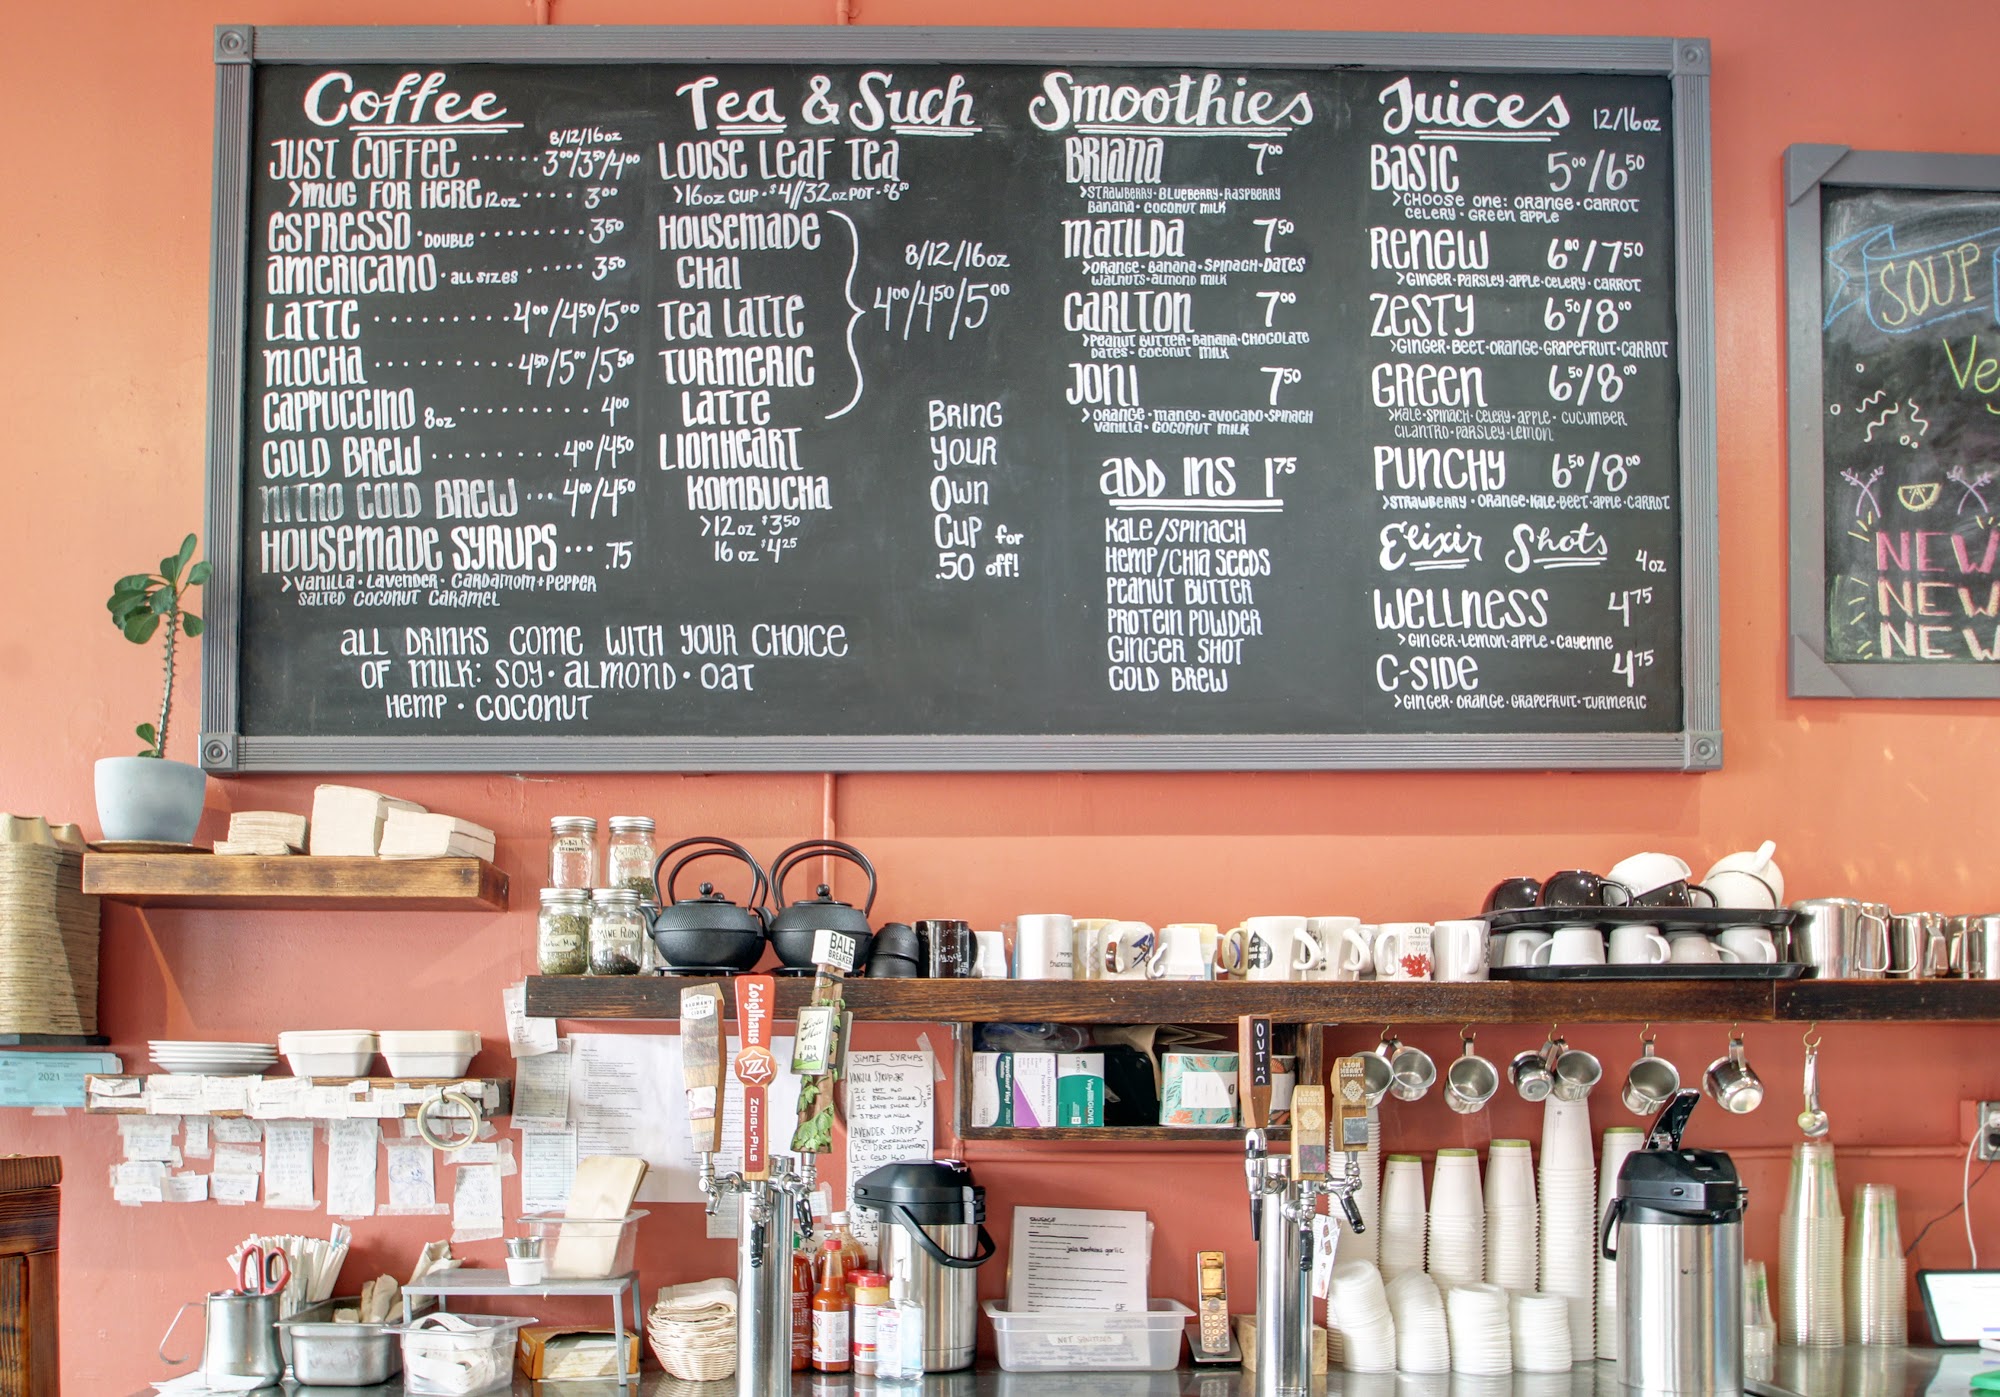 Coffee
8/12/16oz
JUST COFFEE ······ 3⁰⁰/3⁵⁰/4⁰⁰
>MUG FOR HERE 12oz ···· 3⁰⁰
ESPRESSO · DOUBLE ········ 3⁵⁰
AMERICANO · ALL SIZES ····· 3⁵⁰
LATTE ·········· 4⁰⁰/4⁵⁰/5⁰⁰
MOCHA ·········· 4⁵⁰/5⁰⁰/5⁵⁰
CAPPUCCINO 8oz ·········· 4⁰⁰
COLD BREW ·········· 4⁰⁰/4⁵⁰
NITRO COLD BREW ··· 4⁰⁰/4⁵⁰
HOUSEMADE SYRUPS ··· .75
>VANILLA · LAVENDER · CARDAMOM + PEPPER
SALTED COCONUT CARAMEL
ALL DRINKS COME WITH YOUR CHOICE
OF MILK: SOY · ALMOND · OAT
HEMP · COCONUT
Tea & Such
LOOSE LEAF TEA
>16oz CUP · $4//32oz POT · $6⁵⁰
HOUSEMADE
CHAI
TEA LATTE
TURMERIC
LATTE
8/12/16oz
4⁰⁰/4⁵⁰/5⁰⁰
LIONHEART
KOMBUCHA
>12oz $3⁵⁰
16oz $4²⁵
BRING
YOUR
OWN
CUP for
.50 off!
Smoothies
BRIANA 7⁰⁰
>STRAWBERRY · BLUEBERRY · RASPBERRY
BANANA · COCONUT MILK
MATILDA 7⁵⁰
>ORANGE · BANANA · SPINACH · DATES
WALNUTS · ALMOND MILK
CARLTON 7⁰⁰
>PEANUT BUTTER · BANANA · CHOCOLATE
DATES · COCONUT MILK
JONI 7⁵⁰
>ORANGE · MANGO · AVOCADO · SPINACH
VANILLA · COCONUT MILK
ADD INS 1⁷⁵
KALE/SPINACH
HEMP/CHIA SEEDS
PEANUT BUTTER
PROTEIN POWDER
GINGER SHOT
COLD BREW
Juices 12/16oz
BASIC 5⁰⁰/6⁵⁰
>CHOOSE ONE: ORANGE · CARROT
CELERY · GREEN APPLE
RENEW 6⁰⁰/7⁵⁰
>GINGER · PARSLEY · APPLE · CELERY · CARROT
ZESTY 6⁵⁰/8⁰⁰
>GINGER · BEET · ORANGE · GRAPEFRUIT · CARROT
GREEN 6⁵⁰/8⁰⁰
>KALE · SPINACH · CELERY · APPLE · CUCUMBER
CILANTRO · PARSLEY · LEMON
PUNCHY 6⁵⁰/8⁰⁰
>STRAWBERRY · ORANGE · KALE · BEET · APPLE · CARROT
Elixir Shots 4oz
WELLNESS 4⁷⁵
>GINGER · LEMON · APPLE · CAYENNE
C-SIDE 4⁷⁵
>GINGER · ORANGE · GRAPEFRUIT · TURMERIC
SOUP
Ve
NEW
NEW
NEW
BALE
BREAKER
Zoiglhaus
ZOIGL-PILS
IPA
OUT
2021
SIMPLE SYRUPS
VANILLA SYRUP
1C BROWN SUGAR
1C WHITE SUGAR
LAVENDER SYRUP
½ C DRIED LAVENDER
1C COLD H₂O